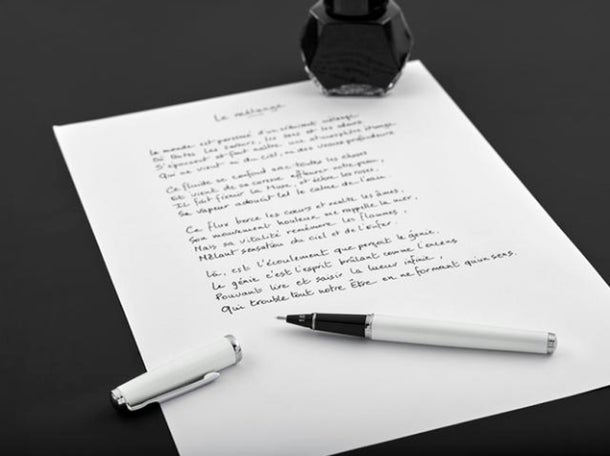 Le mélange
Le monde est parsemé d'un élément mélange
Où toutes les saveurs, les sons et les odeurs
S'épousent et font naître une atmosphère étrange
Qui ne vient ni du ciel, ni des vraies profondeurs
Ce fluide se confond avec toutes les choses
Et vient de sa caresse effleurer notre peau,
Il fait frémir la Muse, et éclore les roses,
Sa vapeur adoucit tel le calme de l'eau.
Ce flux berce les cœurs et exalte les âmes,
Son mouvement houleux me rappelle la mer,
Mais sa vitalité remémore les flammes,
Mêlant sensation du ciel et de l'enfer.
Là, est l'écoulement que perçoit le génie,
Le génie c'est l'esprit brûlant comme l'encens
Pouvant lire et saisir la lueur infinie,
Qui trouble tout notre Être en ne formant qu'un sens.